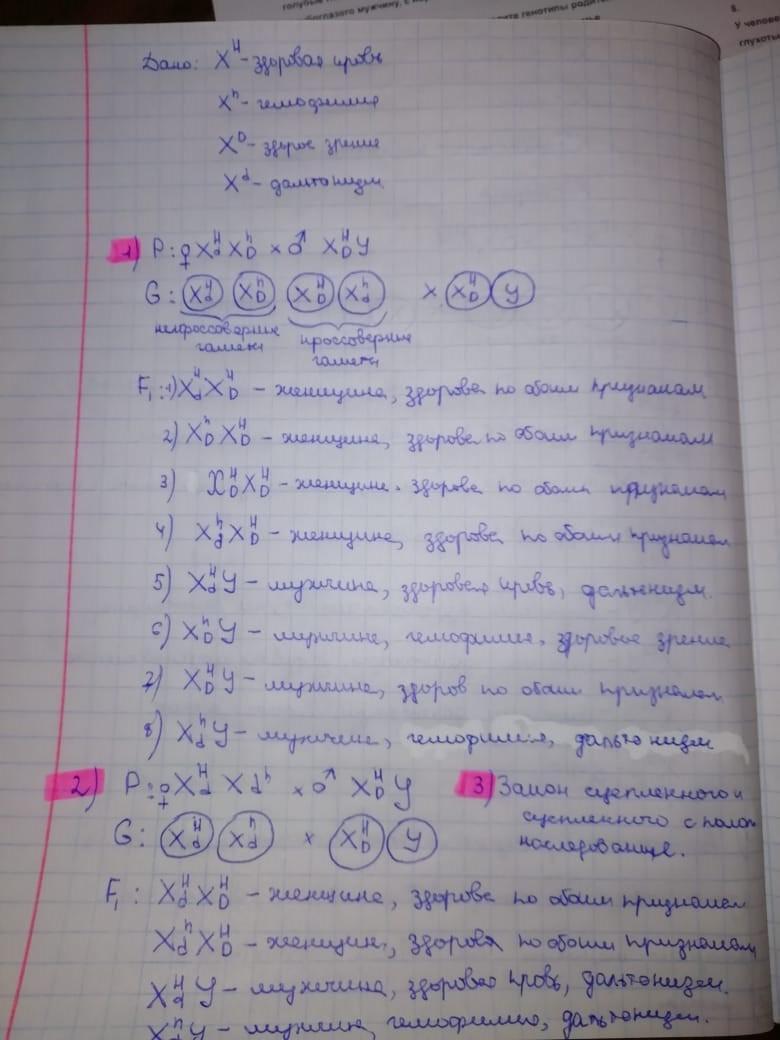 голубые
мужчину, с
генотипы родите
8.
У челове
глухоты
Дано: Xᴴ - здоровая кровь
Xʰ - гемофилия
Xᴰ - здорое зрение
Xᵈ - дальтонизм
1) P: ♀ Xᴴd XʰD × ♂ XᴴD Y
G: Xᴴd XʰD XᴴD Xʰd × XᴴD Y
некроссоверные гаметы кроссоверные гаметы
F₁: 1) Xᴴd XᴴD - женщина, здорова по обоим признакам
2) XʰD XᴴD - женщина, здорова по обоим признакам
3) XᴴD XᴴD - женщина, здорова по обоим признакам
4) Xʰd XᴴD - женщина, здорова по обоим признакам
5) Xᴴd Y - мужчина, здоровая кровь, дальтонизм.
6) XʰD Y - мужчина, гемофилия, здоровое зрение
7) XᴴD Y - мужчина, здоров по обоим признакам
8) Xʰd Y - мужчина, гемофилия, дальтонизм
2) P: ♀ Xᴴd Xdʰ × ♂ XᴴD Y
G: Xᴴd Xʰd × XᴴD Y
F₁: Xᴴd XᴴD - женщина, здорова по обоим признакам
Xʰd XᴴD - женщин, здорова по обоим признакам
Xᴴd Y - мужчина, здоровая кровь, дальтонизм.
Xʰd Y - мужчина, гемофилию, дальтонизм.
3) Закон сцепленного и
сцепленного с полом
наследование.